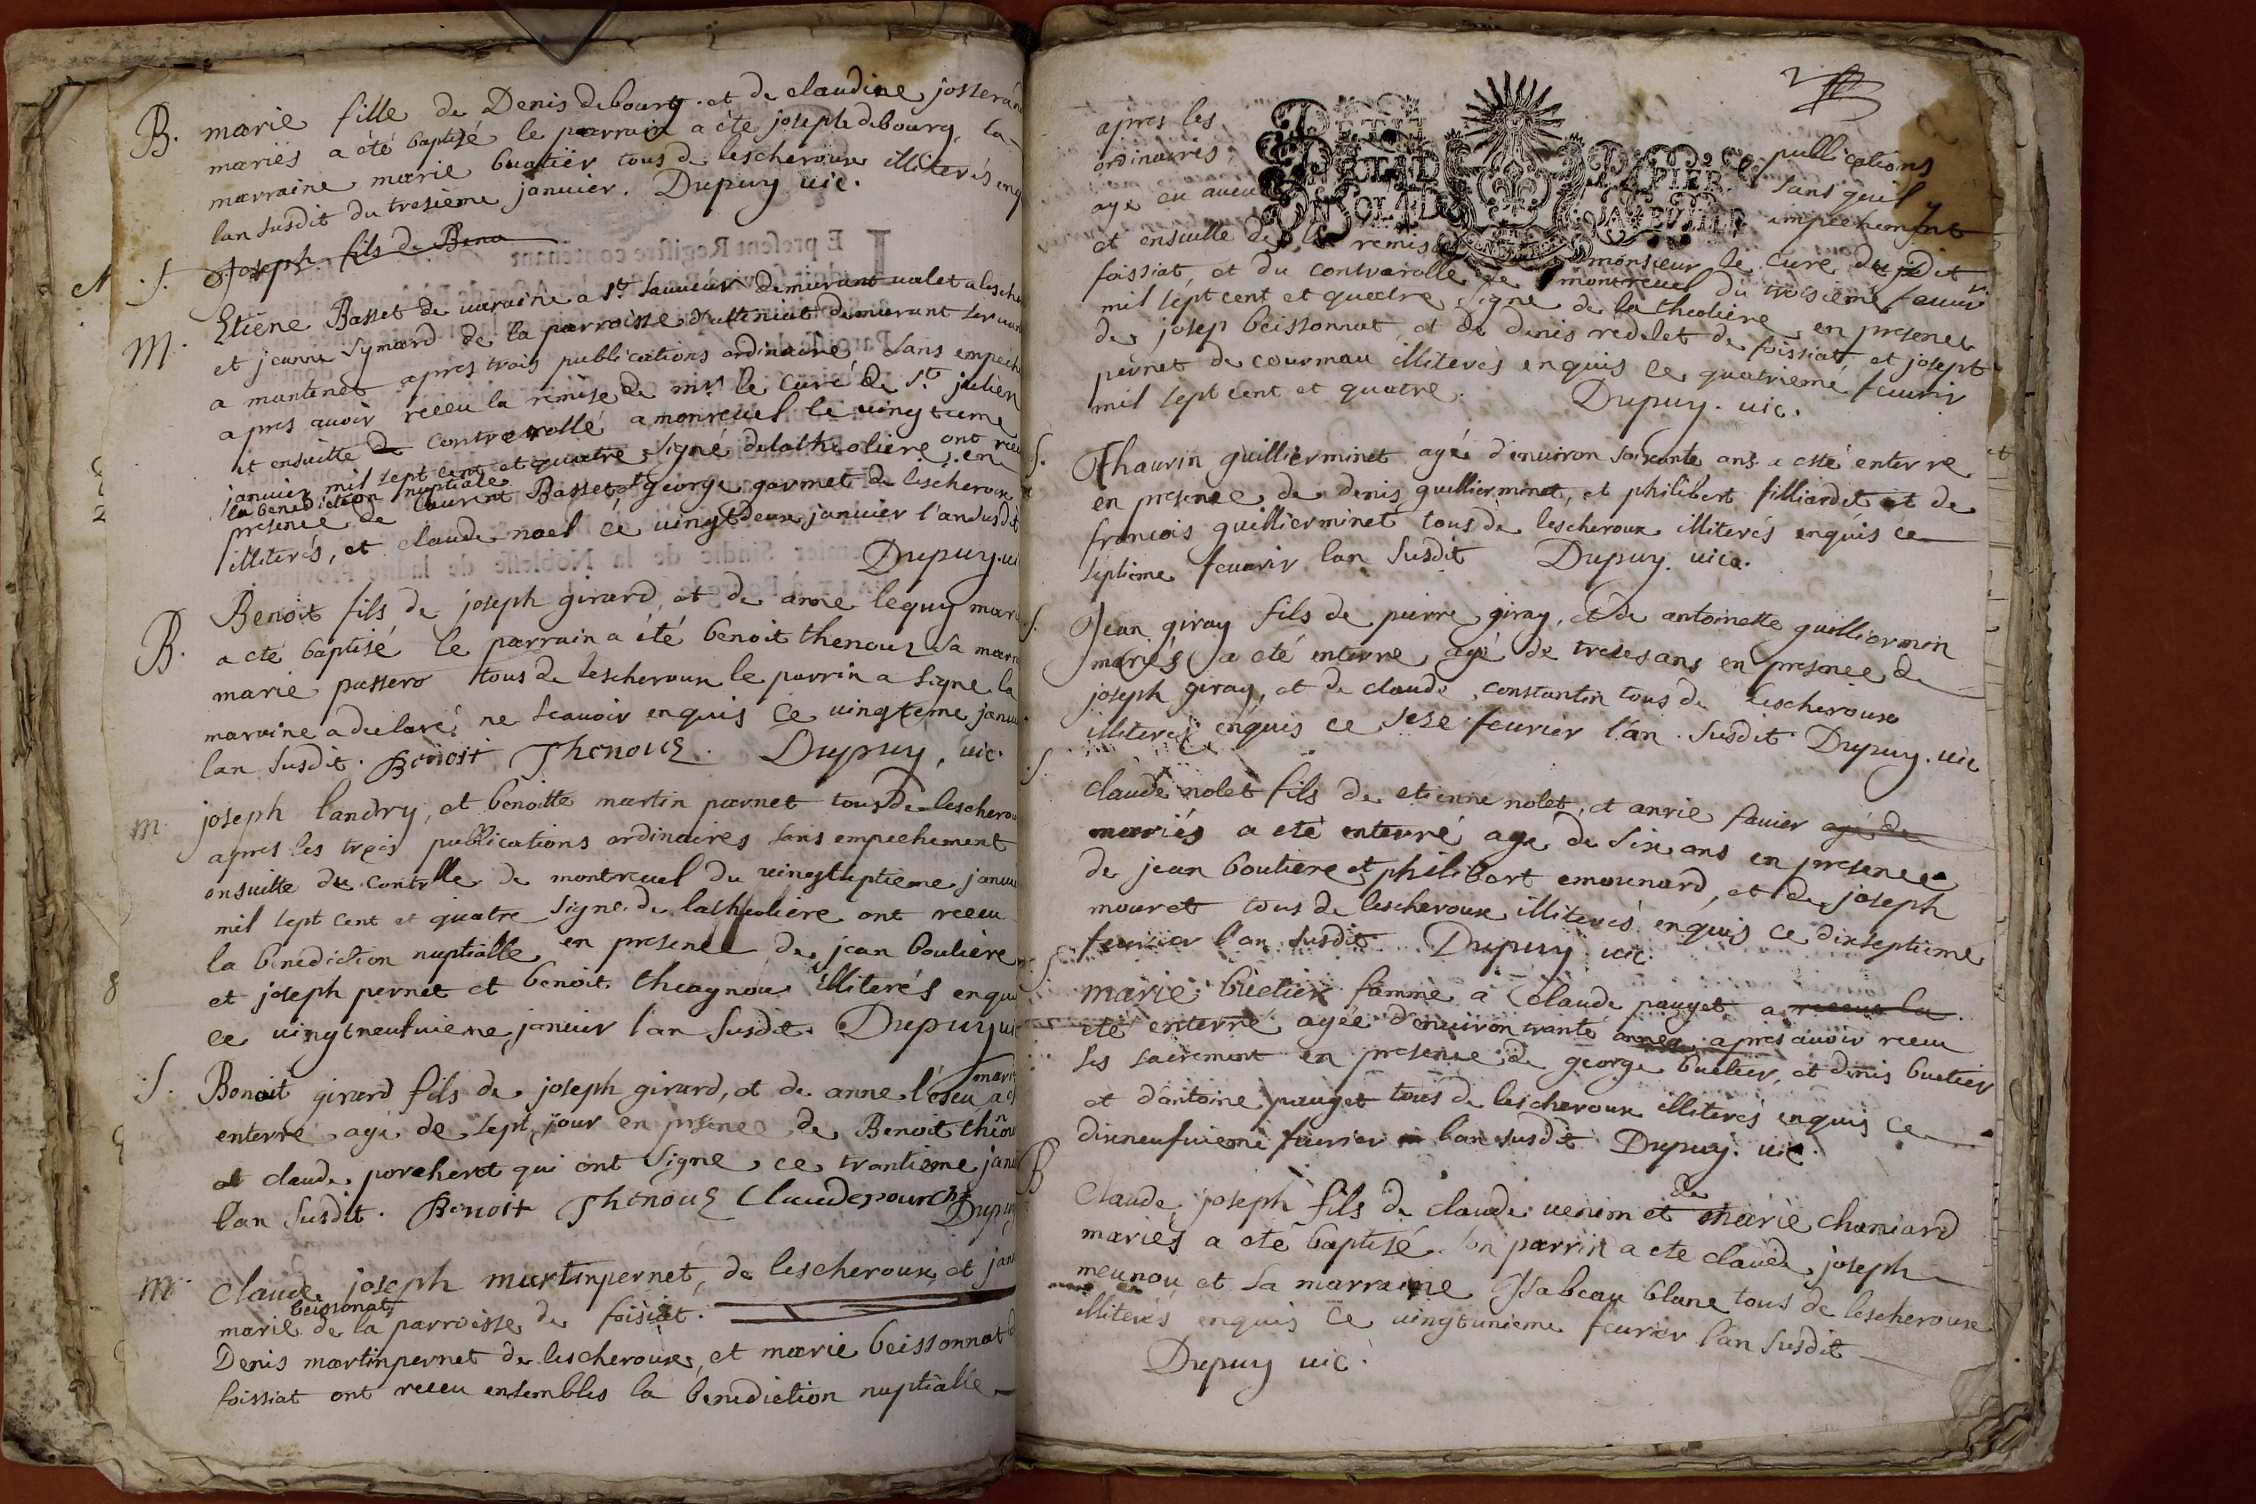 B. marie fille de Denis debourg et de claudine josserand
mariés a été baptisé le parrain a été joseph debourg, la
marraine marie buatiér tous de lescheroux illiterés enq
lan susdit du tresième janvier. Dupuy vic.
S. Joseph fils de Beno
M. Etiene Basset de varaine a St. sauveur demurant valet a lesche
et jeanne Symard de la parroisse d'attiniat demurant servan
a mantenet apres trois publications ordinaire sans empeche
apres avoir receu la remise de mr. le curé de St. julien
et ensuitte de controrollé a monrevel le vingtieme
janvier mil sept cent et quatre signé delatheoliere ont receu
la benediction nuptiale en
presence de laurent Basset et george garmet de lescheroux
illiterés, et claude noel ce vingtdeux janvier l'an susdit
Dupuy. vi
B. Benoit fils de joseph girard, et de anne lequy mari
a eté baptisé le parrain a été benoit thenouz sa marr
marie passero tous de lescheroux le parrin a signe la
marraine a declaré ne scavoir enquis ce vingtieme janvi
lan susdit. Benoit Thenouz. Dupuy, vic.
m. joseph landry, et benoitte martin pernet tous de lescherou
apres les trois publications ordinaires sans empechement
ensuitte du controlle de montrevel du vingtseptieme janvi
mil sept cent et quatre signe de latheoliere ont receu
la benediction nuptialle en presence de jean bouliere
et joseph pernet et benoit theagnou illiterés enqui
ce vingtneufvieme janvier l'an susdit. Dupuy vi
S. Benoit girard fils de joseph girard, et de anne l'éseu marié a é
enterré agé de sept jour en presence de Benoit thénou
et claude porcheret qui ont signe ce trantieme janv
lan susdit. Benoit Thenouz Claude pourch Dupuy
m. Claude joseph martinpernet, de lescheroux, et jan
marie beissonat de la parroisse de foisiat.
Denis martinpernet de lescheroux, et marie beissonnat d
foissiat ont receu ensembles la benediction nuptialle
2
apres les publications
ordinaires, sans quil y
aye eu aucun impechement
PETIT PAPIER
et ensuitte de la remise monsieur le curé dudit
foissiat, et du controrolle de montrevel du troisieme feuvri
mil sept cent et quatre signe de la theoliere en presence
de josep beissonnat et de denis redelet de foissiat, et joseph
pernet de courmau illiterés enquis ce quatrieme feuvrir
mil sept cent et quatre. Dupuy. vic.
S. Thaurin guillierminet agé d'environ soixante ans a esté enterre
en presence de denis guillierminet, et philibert filliardet et de
francois guillierminet tous de lescheroux illiterés enquis ce
septieme feuvrir lan susdit Dupuy. vica.
S. Jean giray fils de pierre giray, et de antoinette guilliermin
mariés a eté enterre, agé de treses ans en presence de
joseph giray, et de claude constantin tous de lescheroux
illiterés enquis ce sese feuvrier l'an susdit Dupuy. vic
S. claude nolet fils de etienne nolet, et anrie favier agé de
mariés a eté enterré agé de six ans en presence
de jean boutiere et philibert emounard, et de joseph
mouret tous de lescheroux illiterés enquis ce dixseptieme
feuvrier l'an susdit Dupuy vic.
S. marie buetier famme a Claude pauget a receu la
eté enterré agée d'environ trante années apres avoir receu
les sacrement en presence de george buetier, et denis buetier
et d'antoine pauget tous de lescheroux illiterés enquis ce
dixneufvieme feuvrier lan susdit Dupuy. vic.
B Claude joseph fils de claude venim et de marie chaniard
mariés a eté baptisé. son parrin a eté claude joseph
meunou, et sa marraine Isabeau blanc tous de lescheroux
illiterés enquis ce vingtunieme feuvrier l'an susdit
Dupuy vic.